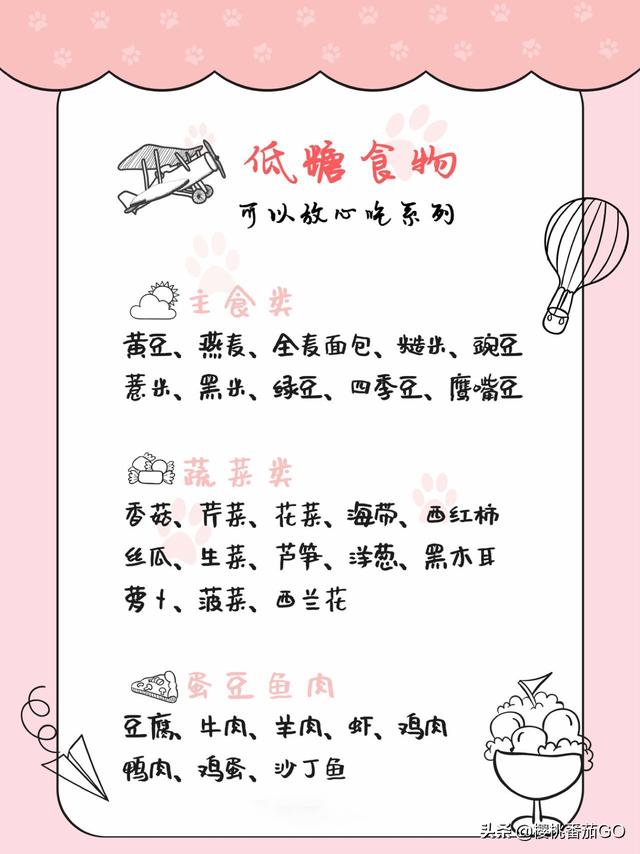 低糖食物
可以放心吃系列
主食类
黄豆、燕麦、全麦面包、糙米、豌豆
薏米、黑米、绿豆、四季豆、鹰嘴豆
蔬菜类
香菇、芹菜、花菜、海带、西红柿
丝瓜、生菜、芦笋、洋葱、黑木耳
萝卜、菠菜、西兰花
蛋豆鱼肉
豆腐、牛肉、羊肉、虾、鸡肉
鸭肉、鸡蛋、沙丁鱼
头条@樱桃番茄GO